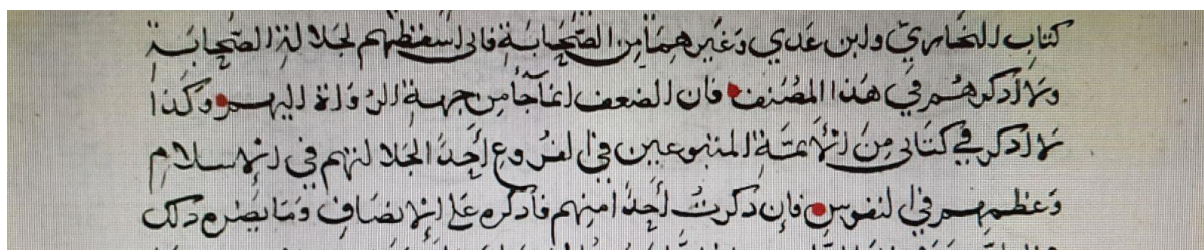 كتاب البخاري وابن عدي وغيرهما من الصحابة فاني اسقطهم لجلالة الصحابة
ولا اذكرهم في هذا المصنف فان الضعف انما جا من جهة الرواة اليهم وكذا
لا اذكر في كتابي من الائمة المتبوعين في الفروع احدا لجلالتهم في الاسلام
وعظمهم في النفوس فان ذكرت احدا منهم فاذكره على الانصاف وما يضره ذلك